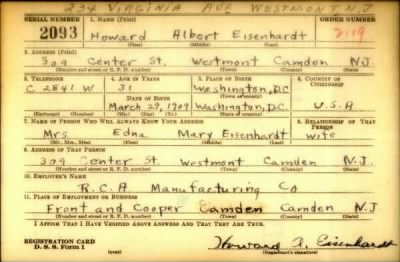 234 VIRGINIA AVE WESTMONT N.J
SERIAL NUMBER 1. NAME (Print) ORDER NUMBER
2093 Howard Albert Eisenhardt 2119
(First) (Middle) (Last)
2. ADDRESS (Print)
309 Center St. Westmont Camden N.J.
(Number and street or R. F. D. number) (Town) (County) (State)
3. TELEPHONE 4. AGE IN YEARS 5. PLACE OF BIRTH 6. COUNTRY OF CITIZENSHIP
C 2841 W 31 Washington, D.C
DATE OF BIRTH (Town or county)
March 29, 1909 Washington, D.C U.S.A
(Exchange) (Number) (Mo.) (Day) (Yr.) (State or country)
7. NAME OF PERSON WHO WILL ALWAYS KNOW YOUR ADDRESS 8. RELATIONSHIP OF THAT PERSON
Mrs Edna Mary Eisenhardt Wife
(Mr., Mrs., Miss) (First) (Middle) (Last)
9. ADDRESS OF THAT PERSON
309 Center St. Westmont Camden N.J.
(Number and street or R. F. D. number) (Town) (County) (State)
10. EMPLOYER'S NAME
R.C.A Manufacturing Co
11. PLACE OF EMPLOYMENT OR BUSINESS
Front and Cooper Camden Camden N.J.
(Number and street or R. F. D. number) (Town) (County) (State)
I AFFIRM THAT I HAVE VERIFIED ABOVE ANSWERS AND THAT THEY ARE TRUE.
REGISTRATION CARD
D. S. S. Form 1 Howard A. Eisenhardt
(Registrant's signature)